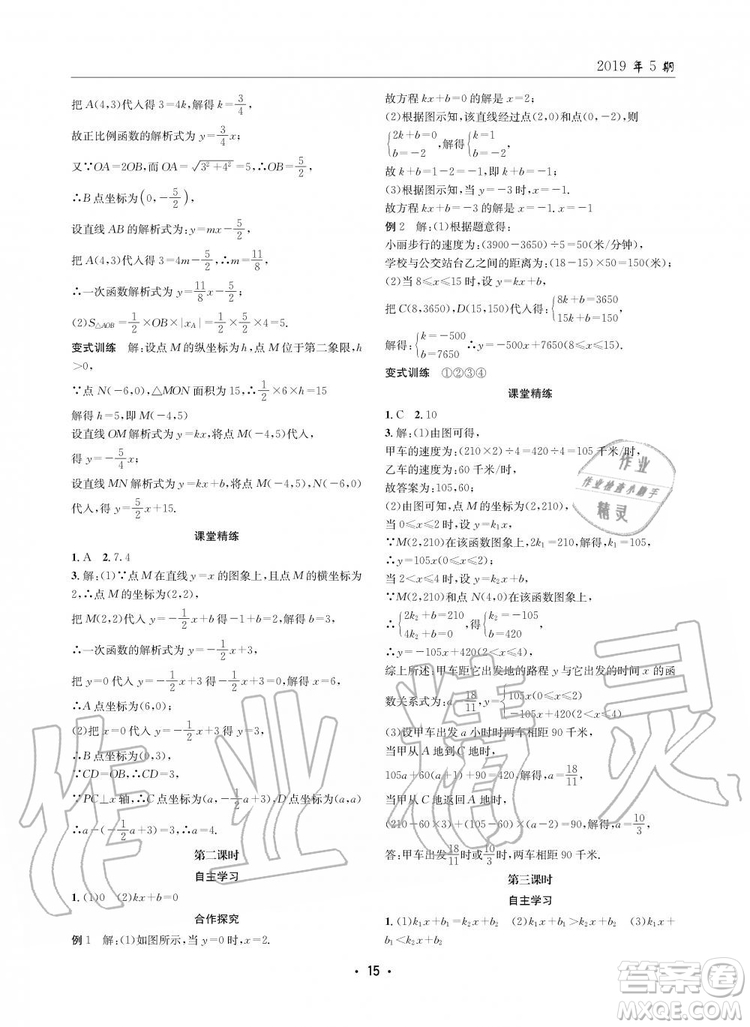 2019 年 5 期
把 A(4,3)代入得 3=4k,解得 k=3/4,
故正比例函数的解析式为 y=3/4x;
又∵OA=2OB,而 OA=√(3²+4²)=5,∴OB=5/2,
∴B 点坐标为(0,-5/2),
设直线 AB 的解析式为 y=mx-5/2,
把 A(4,3)代入得 3=4m-5/2,∴m=11/8,
∴一次函数解析式为 y=11/8x-5/2;
(2)S△AOB=1/2×OB×|xA|=1/2×5/2×4=5.
变式训练 解:设点 M 的纵坐标为 h,点 M 位于第二象限,h
>0,
∵点 N(-6,0),△MON 面积为 15,∴1/2×6×h=15
解得 h=5,即 M(-4,5)
设直线 OM 解析式为 y=kx,将点 M(-4,5)代入,
得 y=-5/4x;
设直线 MN 解析式为 y=kx+b,将点 M(-4,5)、
N(-6,0)代入,得 y=5/2x+15.
课堂精练
1. A 2. 7.4
3. 解:(1)∵点 M 在直线 y=x 的图象上,且点 M 的横坐标为
2,∴点 M 的坐标为(2,2),
把 M(2,2)代入 y=-1/2x+b 得-1+b=2,解得 b=3,
∴一次函数的解析式为 y=-1/2x+3,
把 y=0 代入 y=-1/2x+3 得-1/2x+3=0,解得 x=6,
∴A 点坐标为(6,0);
(2)把 x=0 代入 y=-1/2x+3 得 y=3,
∴B 点坐标为(0,3),
∵CD=OB,∴CD=3,
∵PC⊥x 轴,∴C 点坐标为(a,-1/2a+3),D 点坐标为(a,a)
∴a-(-1/2a+3)=3,∴a=4.
第二课时
自主学习
1. (1)0 (2)kx+b=0
合作探究
例 1 解:(1)如图所示,当 y=0 时,x=2.
故方程 kx+b=0 的解是 x=2;
(2)根据图示知,该直线经过点(2,0)和点(0,-2),
则{2k+b=0 b=-2,解得{k=1 b=-2,
故 k-b=1+2=3,即 k-b=3;
(3)根据图示知,当 y=-3 时,x=-1.
故方程 kx+b=-3 的解是 x=-1. x=-1
例 2 解:(1)根据题意得:
小丽步行的速度为:(3900-3650)÷5=50(米/分钟),
学校与公交站台乙之间的距离为:(18-15)×50=150(米);
(2)当 8≤x≤15 时,设 y=kx+b,
把 C(8,3650),D(15,150)代入得:{8k+b=3650 15k+b=150,
解得:{k=-500 b=7650,∴y=-500x+7650(8≤x≤15)
变式训练 ①②③④
课堂精练
1. C 2. 10
3. 解:(1)由图可得,
甲车的速度为:(210×2)÷4=420÷4=105 千米/时,
乙车的速度为:60 千米/时,
故答案为:105,60;
(2)由图可知,点 M 的坐标为(2,210),
当 0≤x≤2 时,设 y=k₁x,
∵M(2,210)在该函数图象上,2k₁=210,k₁=105,
∴y=105x(0≤x≤2);
当 2<x≤4 时,设 y=k₂x+b,
∵M(2,210)和点 N(4,0)在该函数图象上,
∴{2k₂+b=210 4k₂+b=0,得{k₂=-105 b=420
∴y=-105x+420(2<x≤4),
综上所述:甲车距它出发地的路程 y 与它出发的时间 x 的函
(3)设甲车出发 a 小时时两车相距 90 千米,
当甲从 A 地到 C 地时,
105a+60(a+1)+90=60×6+210,解得,a=18/11,
当甲从 C 地返回 A 地时,
(210-60×3)+(105-60)×(a-2)=90,解得,a=10/3,
答:甲车出发 18/11 时或 10/3 时,两车相距 90 千米.
第三课时
自主学习
1. (1)k₁x+b₁=k₂x+b₂ (2)k₁x+b₁>k₂x+b₂ (3)k₁x
+b₁<k₂x+b₂
· 15 ·
作业
作业检查小助手
精灵
作业精灵
答案圈
MXQE.COM